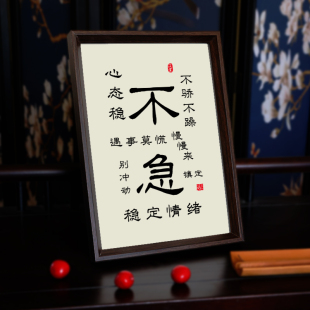 心态稳
不骄不躁
不急
遇事莫慌
慢慢来
别冲动
镇定
稳定情绪